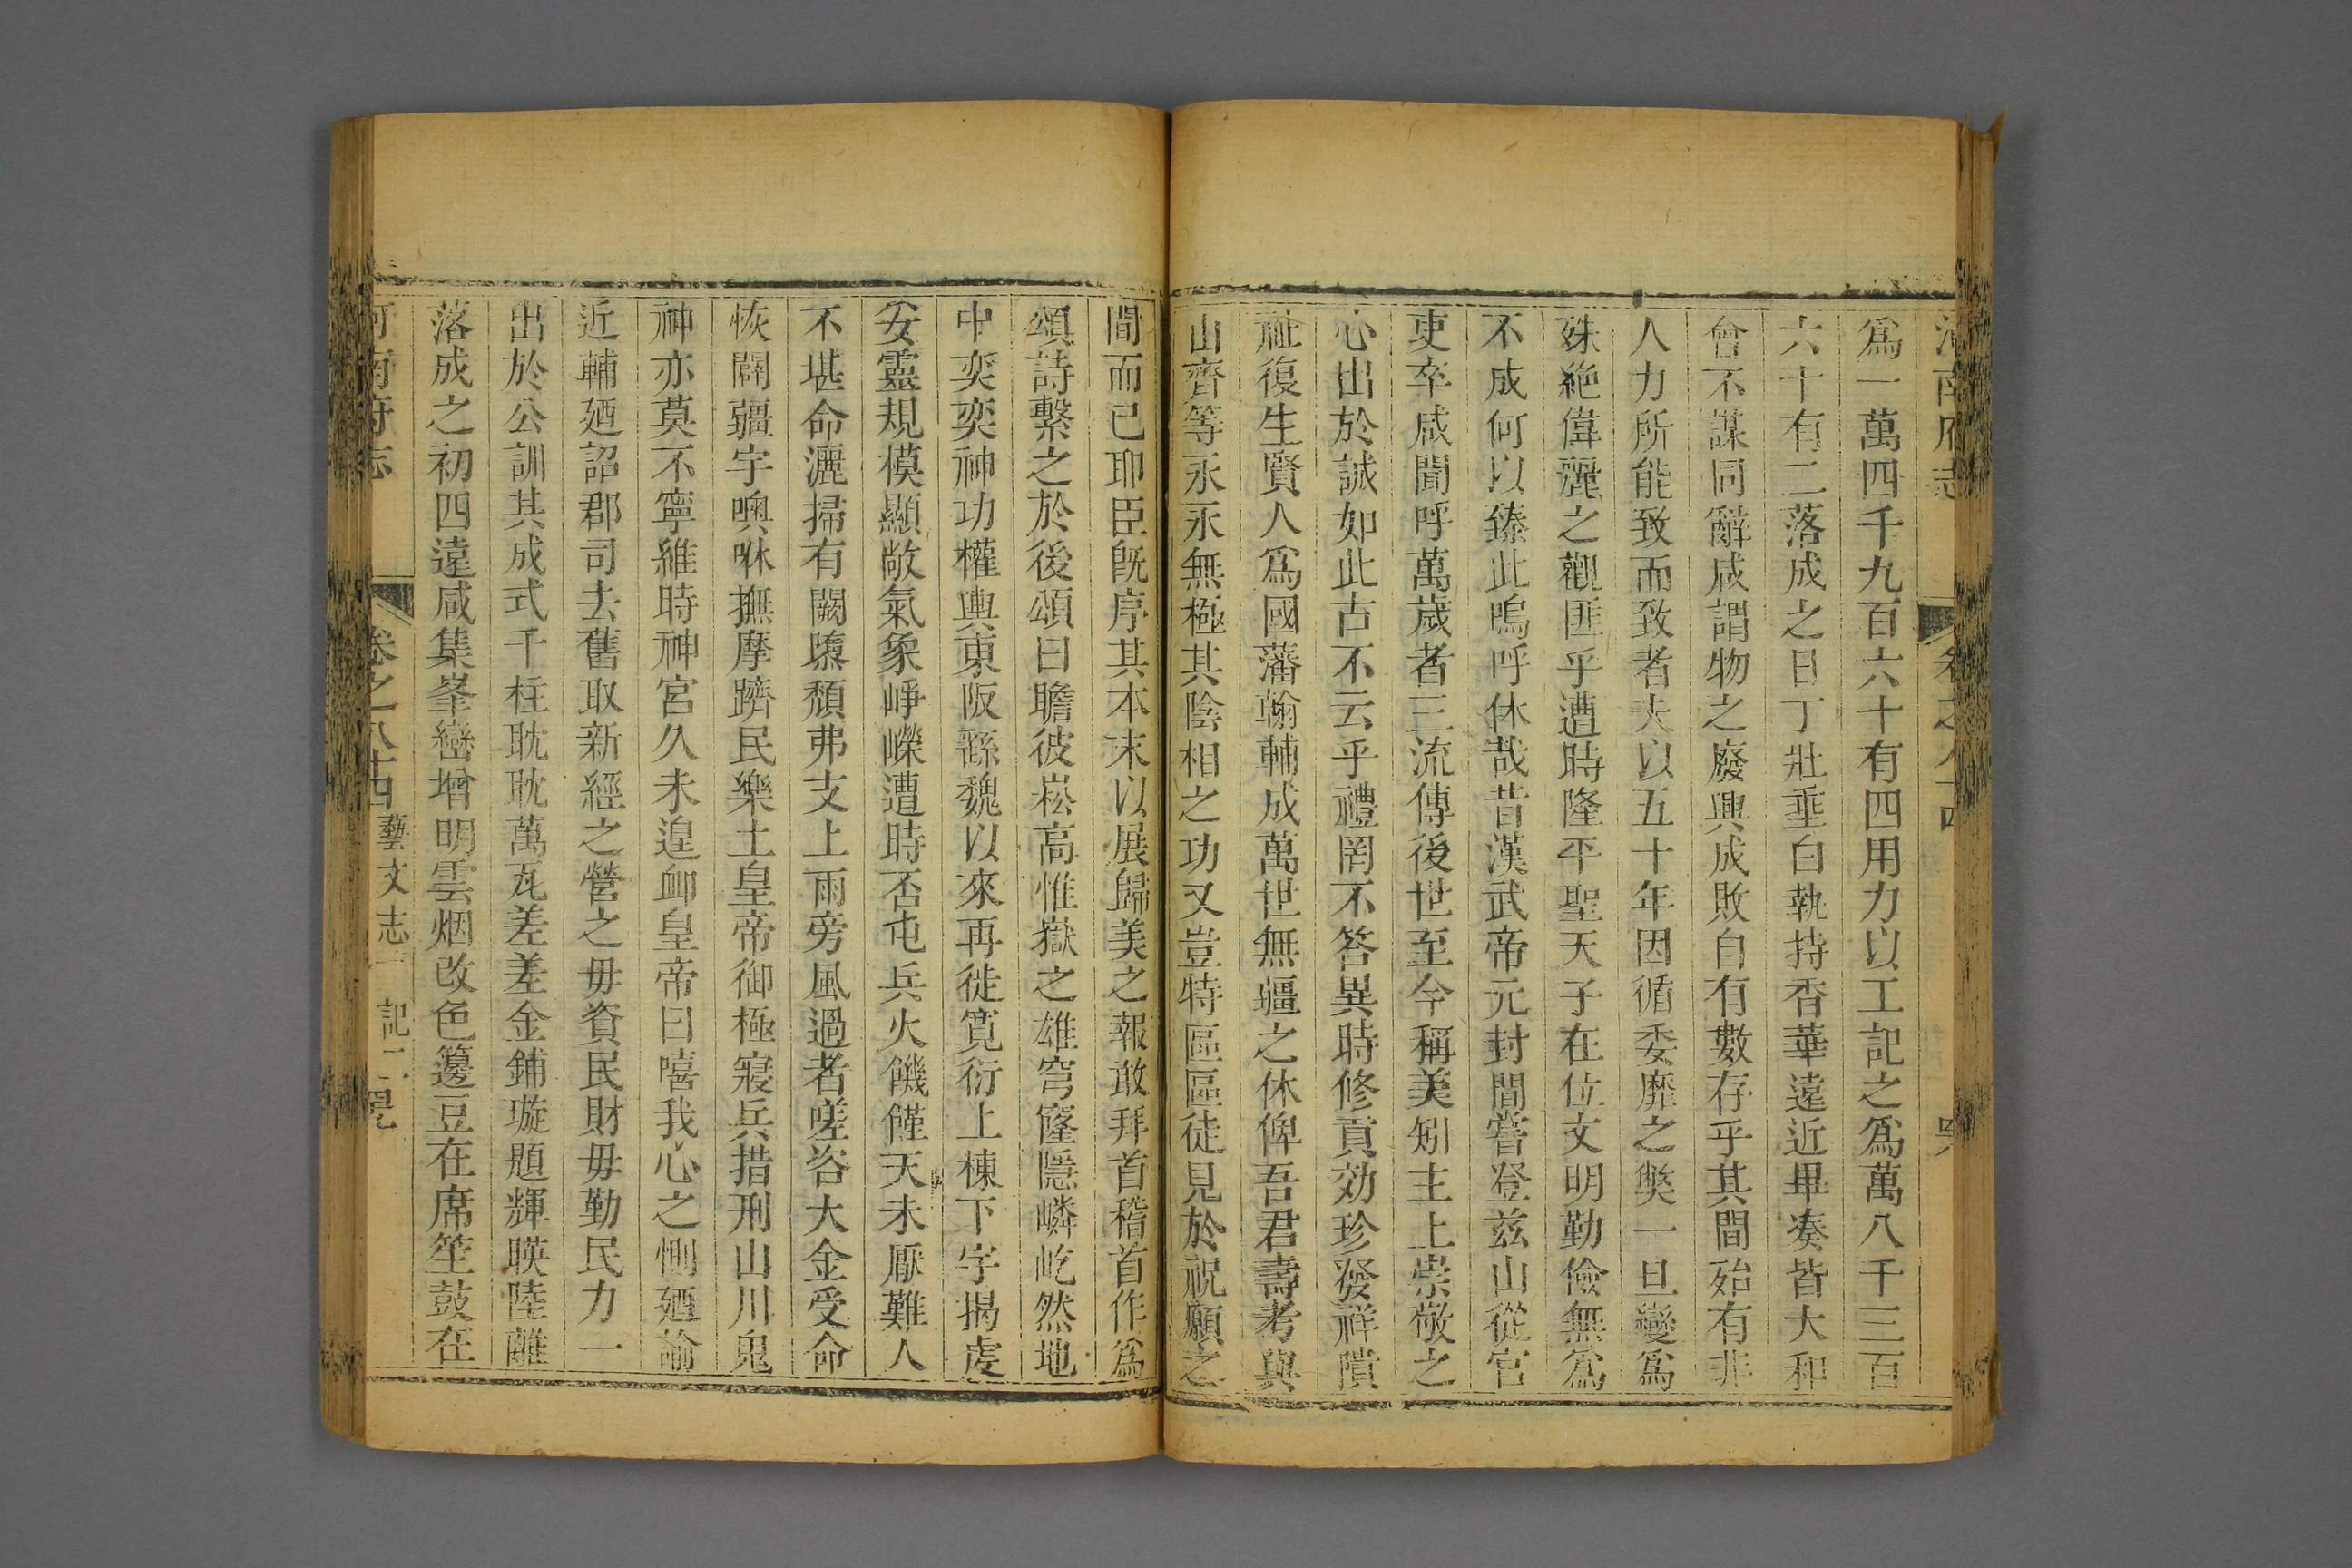 河南府志 卷之八十四
爲一萬四千九百六十有四用力以工記之爲萬八千三百
六十有二落成之日丁壯垂白執持香華遠近畢湊皆大和
會不謀同辭咸謂物之廢興成敗自有數存乎其間殆有非
人力所能致而致者夫以五十年因循委靡之獘一旦變爲
殊絶偉麗之觀匪乎遭時隆平聖天子在位文明勤儉無爲
不成何以臻此嗚呼休哉昔漢武帝元封間嘗登兹山從官
吏卒咸聞呼萬歲者三流傳後世至今稱美矧主上崇敬之
心出於誠如此古不云乎禮罔不答異時修貢効珍發祥隤
祉復生賢人爲國藩翰輔成萬世無疆之休俾吾君壽考與
山齊等永永無極其陰相之功又豈特區區徒見於祝願之
間而已耶臣旣序其本末以展歸美之報敢拜首稽首作爲
頌詩繫之於後頌曰瞻彼崧高惟嶽之雄穹窿隱嶙屹然地
中奕奕神功權輿東阪繇魏以來再徙寬衍上棟下宇揭虔
妥靈規模顯敞氣象崢嶸遭時否屯兵火饑饉天未厭難人
不堪命灑掃有闕隳頹弗支上雨旁風過者嗟咨大金受命
恢闢疆宇噢咻撫摩躋民樂土皇帝御極寢兵措刑山川鬼
神亦莫不寧維時神宮久未遑卹皇帝曰嘻我心之惻廼諭
近輔廼詔郡司去舊取新經之營之毋資民財毋勤民力一
出於公訓其成式千柱耽耽萬瓦差差金鋪璇題輝暎陸離
落成之初四遠咸集峯巒增明雲烟改色籩豆在席笙鼓在
河南府志 卷之八十四 藝文志 記二